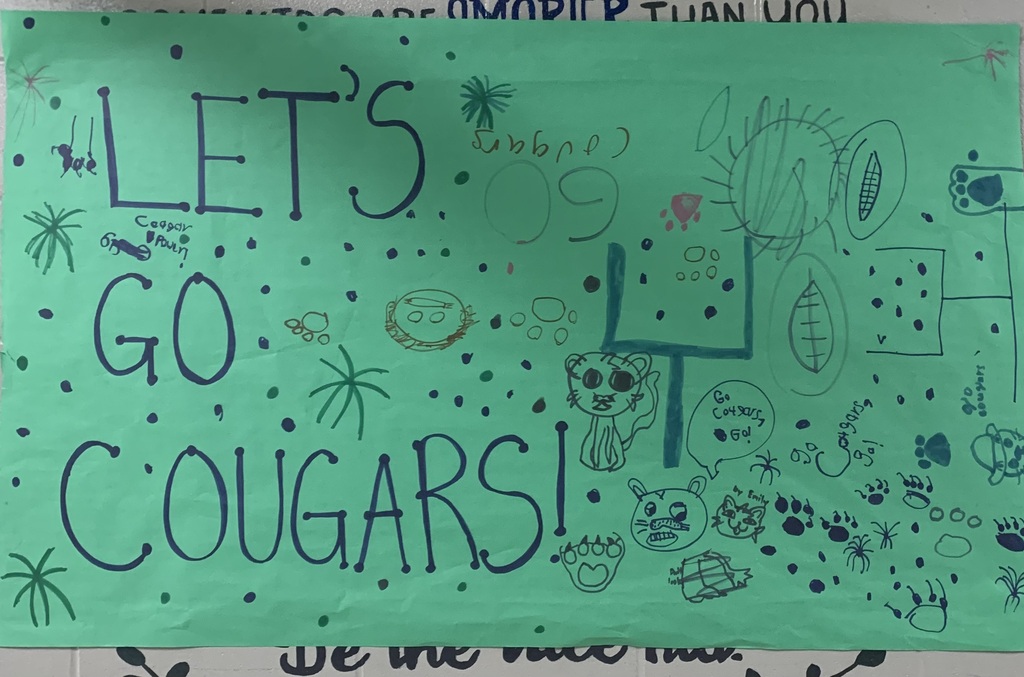 SOME KIDS ARE SMARTER THAN YOU
LET'S
GO
COUGARS!
Cougars
GO
Cougar
Pawn
Go
Cougars,
Go!
go
Cougars,
go!
go
cougars
by Emily
Be the nice kid.